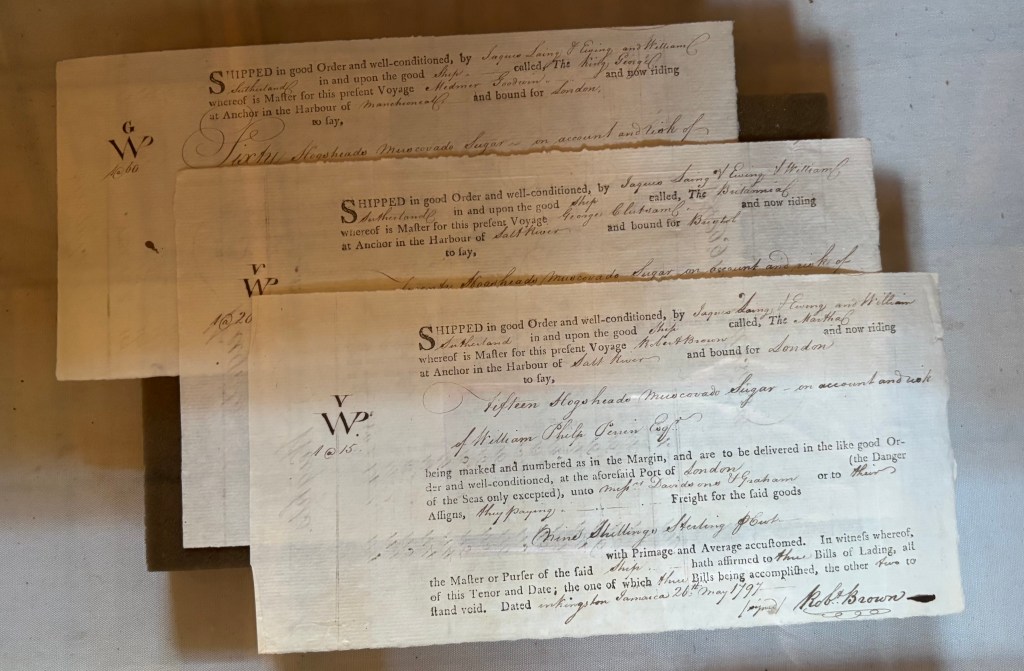 SHIPPED in good Order and well-conditioned, by Jaques Laing & Ewing and William
Sutherland in and upon the good Ship called, The King George
whereof is Master for this present Voyage Goodwin and now riding
at Anchor in the Harbour of Manchioneal and bound for London,
to say,
G
WP
1@60
Sixty Hogsheads Muscovado Sugar – on account and risk of
SHIPPED in good Order and well-conditioned, by Jaques Laing & Ewing & William
Sutherland in and upon the good Ship called, The Britannia
whereof is Master for this present Voyage George and now riding
at Anchor in the Harbour of Salt River and bound for Bristol
to say,
V
WP
1@20
Twenty Hogsheads Muscovado Sugar on account and risk of
SHIPPED in good Order and well-conditioned, by Jaques Laing & Ewing and William
Sutherland in and upon the good Ship called, The Martha
whereof is Master for this present Voyage Robert Brown and now riding
at Anchor in the Harbour of Salt River and bound for London
to say,
V
WP.
1@15.
Fifteen Hogsheads Muscovado Sugar – on account and risk
of William Philp Perrin Esqr.
being marked and numbered as in the Margin, and are to be delivered in the like good Or-
der and well-conditioned, at the aforesaid Port of London (the Danger
of the Seas only excepted), unto Messrs Davidsons & Graham or to their
Assigns, they paying Freight for the said goods
Nine Shillings Sterling ⅌ Cwt
with Primage and Average accustomed. In witness whereof,
the Master or Purser of the said Ship hath affirmed to three Bills of Lading, all
of this Tenor and Date; the one of which three Bills being accomplished, the other two to
stand void. Dated in Kingston Jamaica 26th May 1797
(signed) Robt. Brown